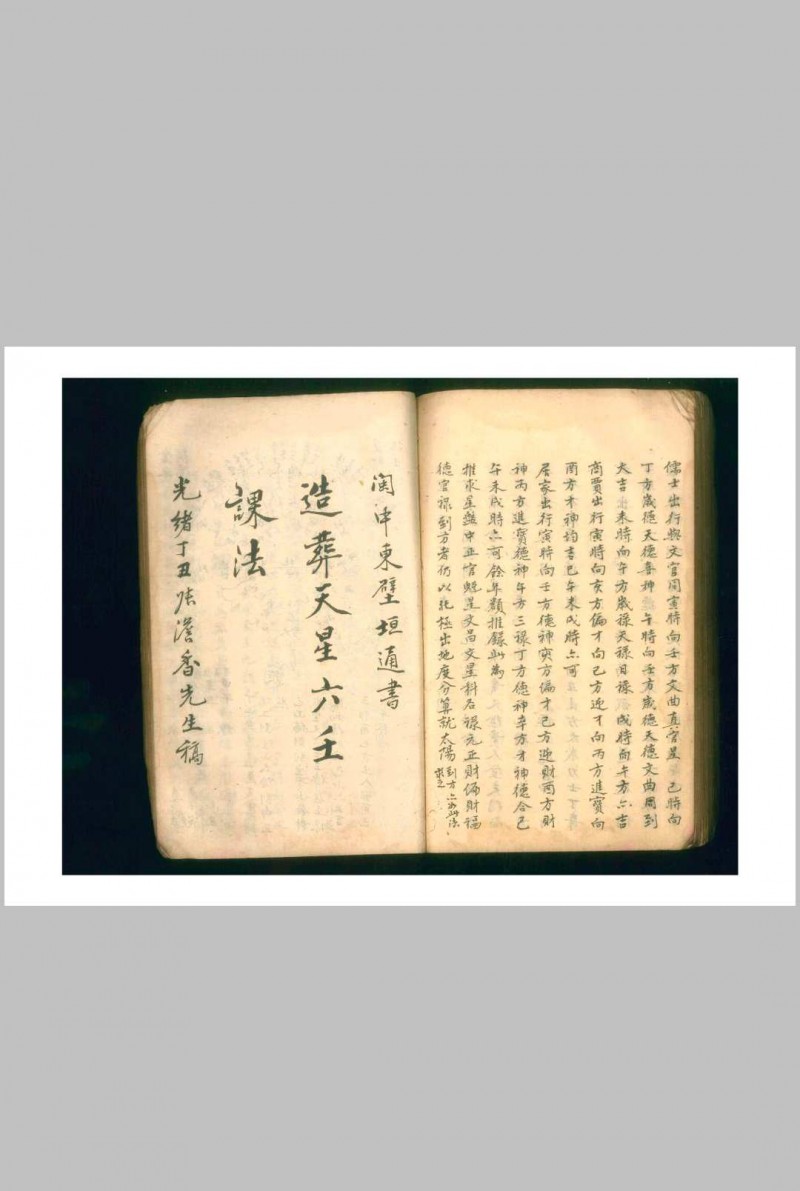 儒士出行與文官同寅時向壬方文曲真官星 巳時向
丁方歲德天德喜神 午時向壬方歲德天德文曲同到
大吉 未時向午方歲祿天祿日祿 戌時向午方亦吉
商賈出行寅時向亥方偏才向己方迎才向丙方進寶向
酉方才神均吉巳午未戌時亦可
居家出行寅時向壬方德神寅方偏才己方迎財酉方財
神丙方進寶德神午方三祿丁方德神辛方才神德合巳
午未戌時亦可餘年類推錄此為
推求星盤中正官魁星文昌文星科名祿元正財偏財福
德官祿到方者仍以北極出地度分算就太陽到方亦如此法
求之
閩中東壁垣通書
造葬天星六壬
課法
光緒丁丑張澹香先生稿